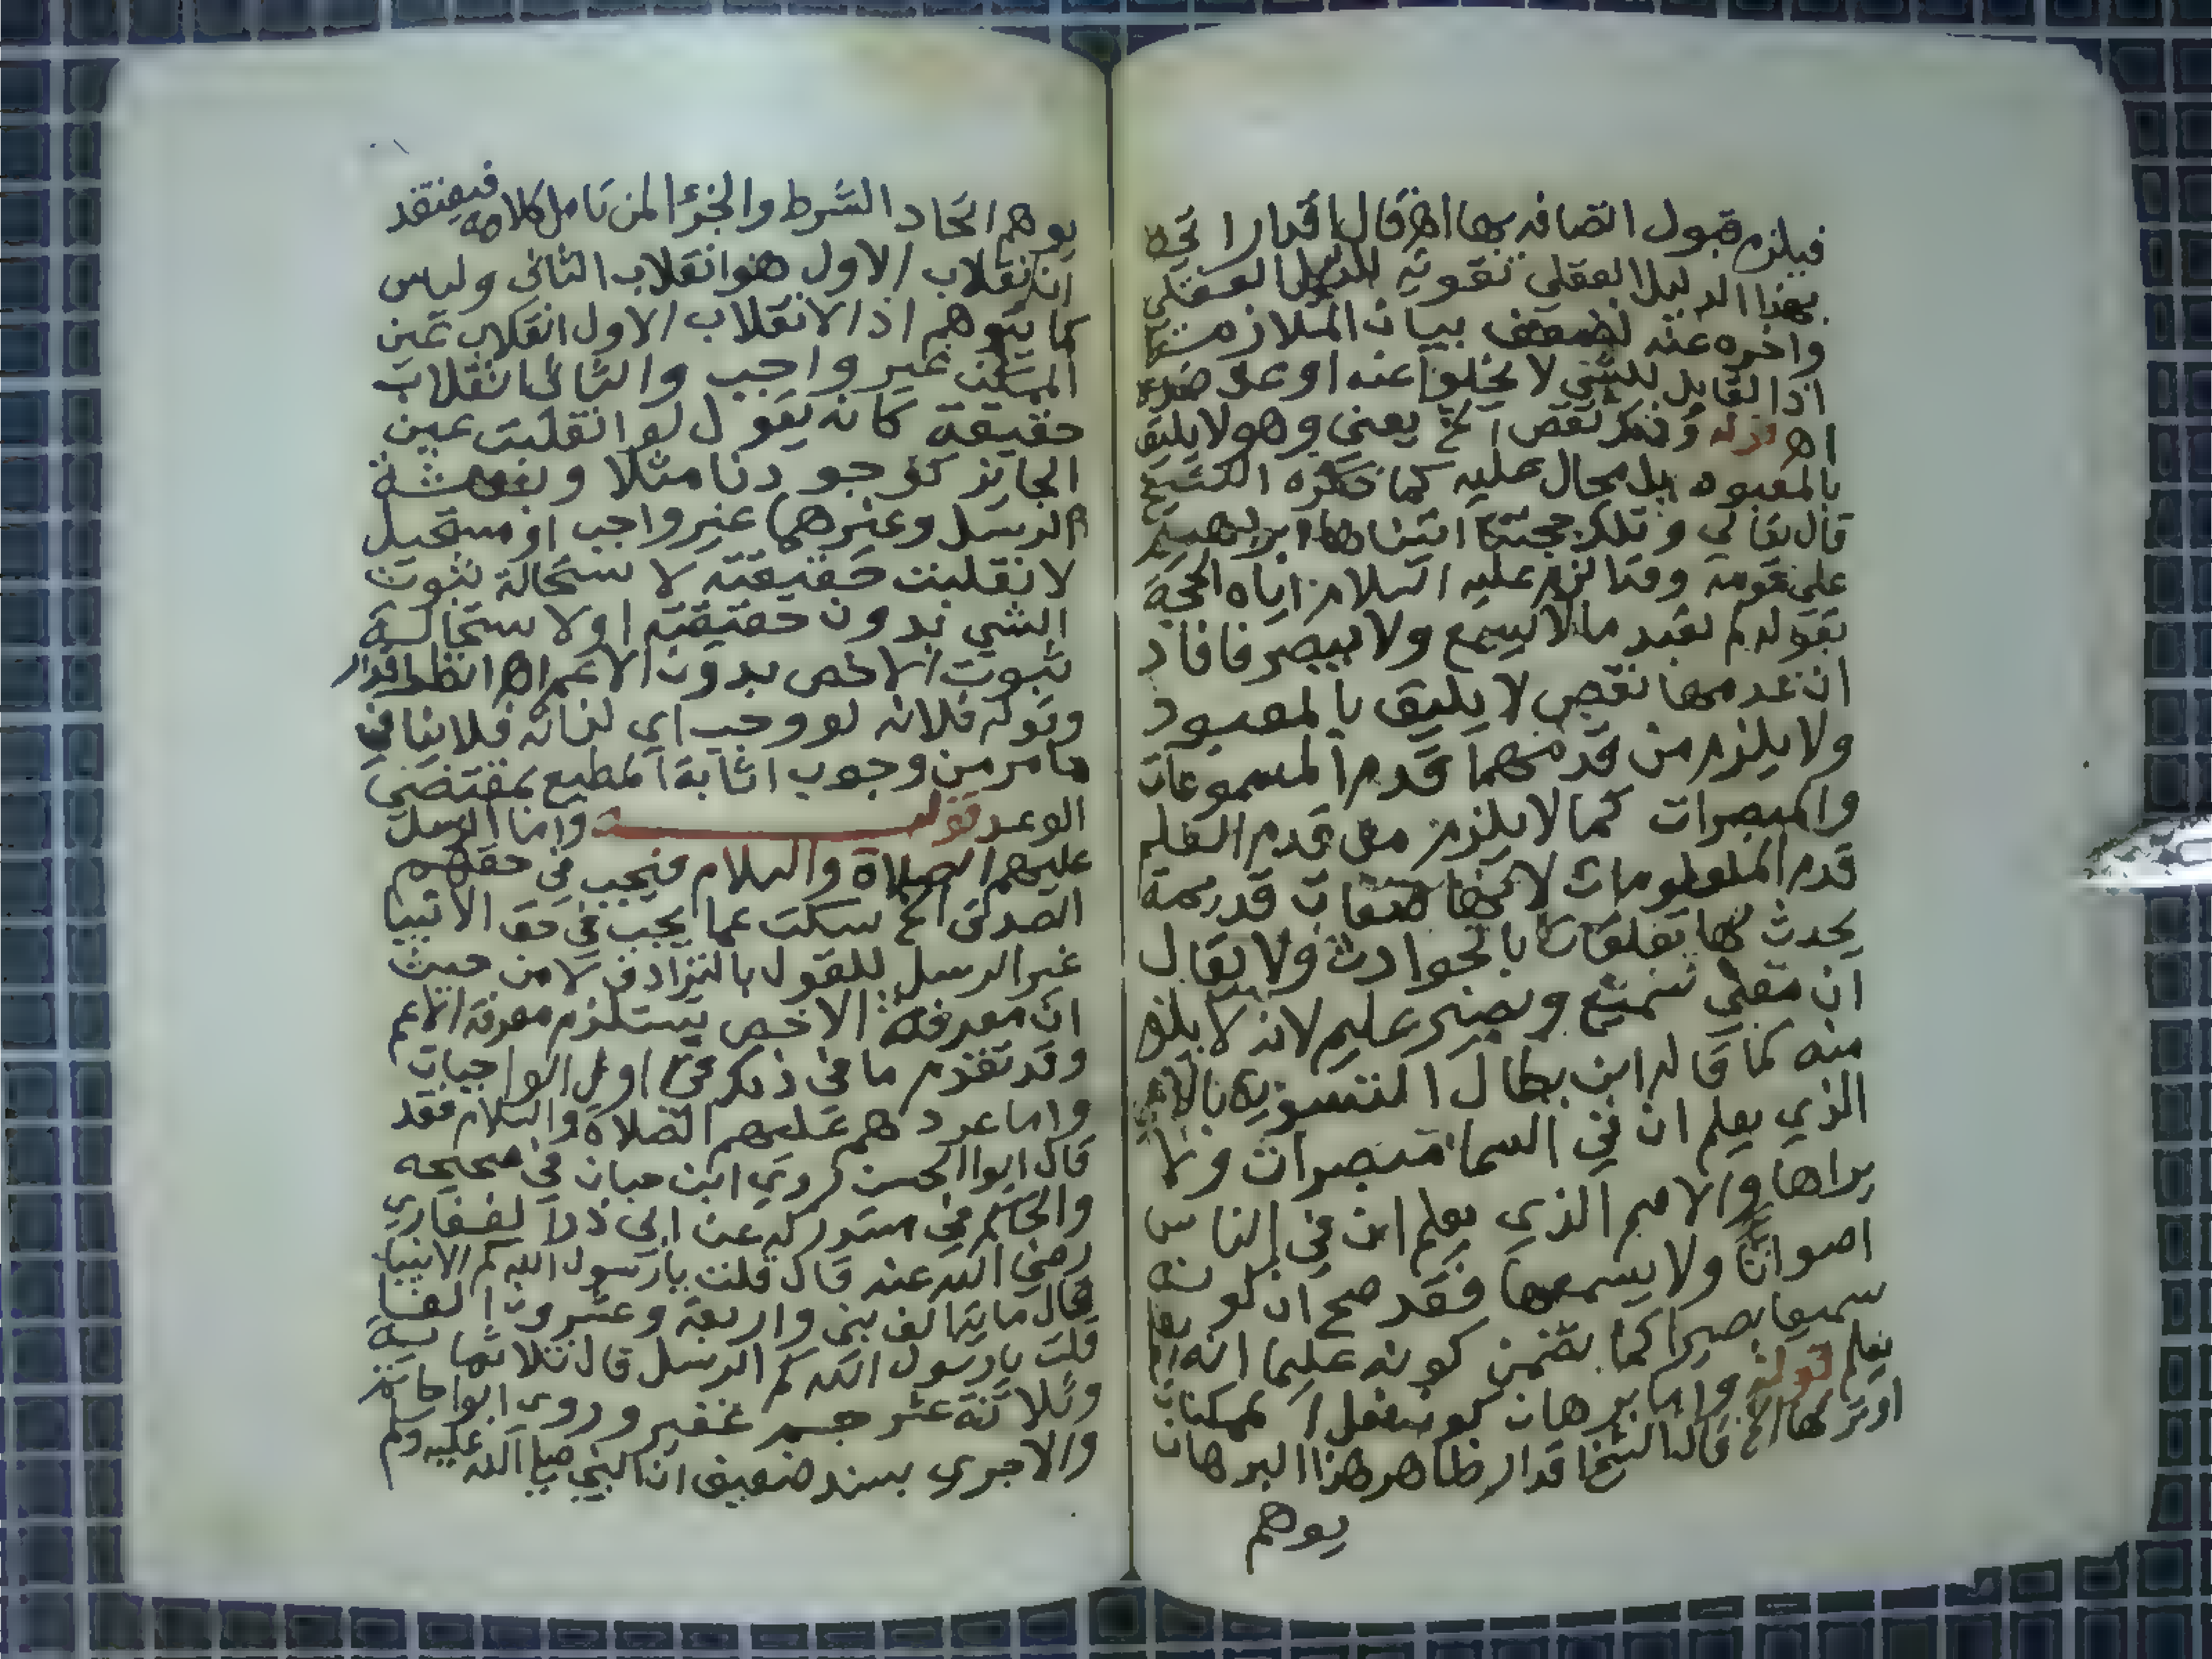 فيلزم قبول اتصافه بها اهـ قال اقدار
بهذا الدليل العقلي تقوية للدليل العقلي
واخره عنه لضعف بيان الملازمة
اذ القابل للشي لا يخلوا عنه او عن ضده
اهـ قوله نقص الخ يعني وهو لا يليق
بالمعبود بل محال عليه كما ذكره
قال تعالي وتلك حجتنا اتيناها ابراهيم
علي قومه وقد الزم عليه السلام اباه الحجة
بقوله لم تعبد مالا يسمع ولا يبصر فافاد
ان عدمها نقص لا يليق بالمعبود
ولا يلزم من قدمهما قدم المسموعات
والمبصرات كما لا يلزم من قدم العلم
قدم المعلومات لانها صفات قديمة
يحدث لها تعلقات بالحوادث ولا يقال
ان معني سميع وبصير عليم لانه لا يلزم
منه كما قاله ابن بطال التسوية بالاعمي
الذي يعلم ان في السما مبصرات ولا
يراها والاصم الذي يعلم ان في الناس
اصواتا ولا يسمعها فقد صح ان كونه
سميعا بصيرا كما تضمن كونه عليما انه
يعلم قوله واما برهان كون فعل الممكنات
او تركها الخ قال الشيخ اقدار ظاهر هذا البرهان
يوهم
يوهم اتحاد الشرط والجزا لمن تامل كلامه فيعتقد
ان انقلاب الاول هو انقلاب الثاني وليس
كما يتوهم اذ الانقلاب الاول انقلاب عين
الممكن غير واجب والثاني انقلاب
حقيقة كانه يقول لو انقلبت عين
الجايز كوجودنا مثلا وبعثة
الرسل وغيرهما غير واجب او مستحيل
لانقلبت حقيقته لاستحالة ثبوت
الشي بدون حقيقته او لاستحالة
ثبوت الاخص بدون الاعم اهـ انظر اقدار
وقوله فلانه لو وجب اي لذاته فلا ينافي
ما مر من وجوب اثابة المطيع بمقتضي
الوعد قوله واما الرسل
عليهم الصلاة والسلام فيجب في حقهم
الصدق الخ سكت عما يجب في حق الانبيا
غير الرسل للقول بالترادف لا من حيث
ان معرفة الاخص يستلزم معرفة الاعم
وقد تقدم ما في ذلك في اول الواجبات
واما عددهم عليهم الصلاة والسلام فقد
قال ابوا الحسن روي ابن حبان في صحيحه
والحاكم في مستدركه عن ابي ذر الغفاري
رضي الله عنه قال قلت يارسول الله كم الانبيا
قال مايتا الف نبي واربعة وعشروت الفا
قلت يارسول الله كم الرسل قال ثلاثماية
وثلاثة عشر جم غفير وروي ابوا حاتم
والاجري بسند ضعيف ان النبي صلي الله عليه وسلم